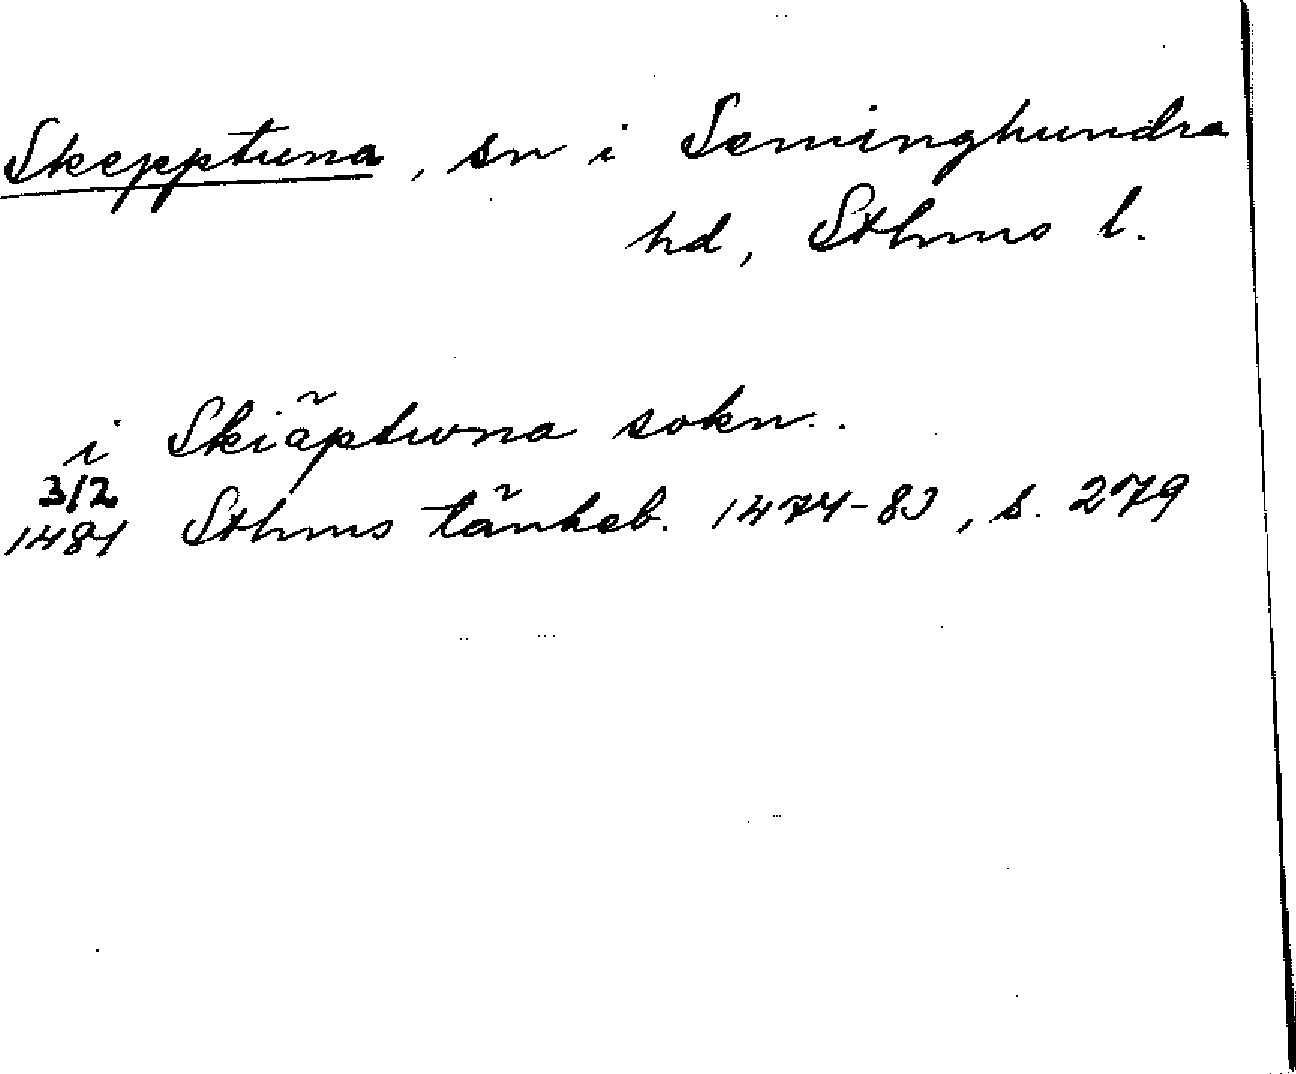 Skepptuna, sn i Seminghundra
hd, Sthms l.
i Skiäptwna sokn.
3/2
1481 Sthms tänkeb. 1474-83, s. 279